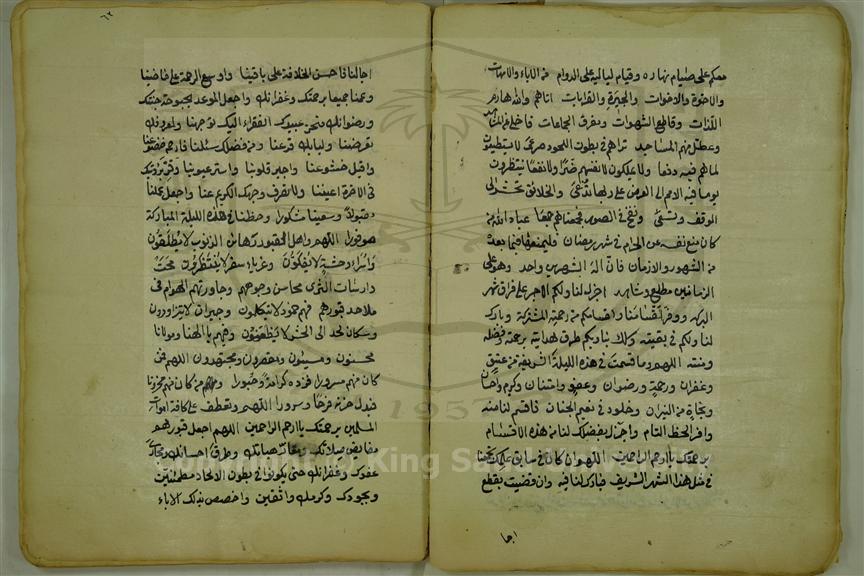 معكم على صيام نهاره وقيام لياليه على الدوام من الاباء والامهات
والاخوة والاخوات والجيرة والقرابات اتاهم والله هادم
اللذات وقاطع الشهوات ومفرق الجماعات فاخلى منهم المشاهد
وعطل منهم المساجد تراهم في بطون اللحود صرعى لا يستطيعون
لما هم فيه دفعا ولا يملكون لانفسهم ضرا ولا نفعا ينتظرون
يوما فيه الامم الى العرض على ربها تدعى والخلائق تحشر الى
الموقف وتسعى ونفخ في الصور فجمعناهم جمعا عباد الله من
كان منع نفسه عن الحرام في شهر رمضان فليمنعها فيما بعده
من الشهور والازمان فان اله الشهرين واحد وهو على
الزمانين مطلع وشاهد اجزل لنا ولكم الاجر على فراق شهر
البركه ووفر اقسامنا واقسامكم من رحمته المشتركة وبارك
لنا ولكم في بقيته وسلك بنا وبكم طرق هدايته برحمته وفضله
ومنته اللهم وما قسمت في هذه الليلة الشريفة من عتق
وغفران ورحمة ورضوان وعفو وامتنان وكرم واحسان
ونجاة من النيران وخلود في نعيم الجنان فاقسم لنا منه
وافر الحظ التام واجزل بفضلك لنا من هذه الاقسام
برحمتك يا ارحم الراحمين اللهم وان كان في سابق علمك تجمعنا
في مثل هذا الشهر الشريف فبارك لنا فيه وان قضيت بقطع
اجا
٦٢
اجالنا فاحسن الخلافة على باقينا واوسع الرحمة على ماضينا
وعمنا جميعا برحمتك وغفرانك واجعل الموعد بحبوحة جنتك
ورضوانك ونحن عبيدك الفقراء اليك توجهنا ولعفوك
تعرضنا ولبابك قرعنا ومن فضلك سئلنا فارحم خضوعنا
واقبل خشوعنا واجبر قلوبنا واستر عيوبنا وقر برؤيتك
في الاخرة اعيننا ولا تصرف وجهك الكريم عنا واجعل عملنا
مقبولا وسعينا مشكورا وحظنا في هذه الليلة المباركة
موفورا اللهم واهل القبور رهاين الذنوب لا يطلقون
واسراء وحشة لا يفكون وغرباء سفر لا ينتظرون محت
دارسات الثرى محاسن وجوههم وجاورتهم الهوام في
ملاحد قبورهم فهم جمود لا يتكلمون وجيران لا يتزاورون
وسكان لحد الى الحشر لا يظعنون وفيهم يا الهنا ومولانا
محسنون ومسيئون ومقصرون ومجتهدون اللهم فمن
كان منهم مسرورا فزده كرامة وحبورا ومن كان منهم محزونا
فبدل حزنه فرحا وسرورا اللهم وتعطف على كافة اموات
المسلمين برحمتك يا ارحم الراحمين اللهم اجعل قبورهم
مفايض صلاتك ومحال هباتك وطرق احسانك ومجارى
عفوك وغفرانك حتى يكونوا في بطون الالحاد مطمئنين
وبجودك وكرمك واثقين واخصص بذلك الاباء